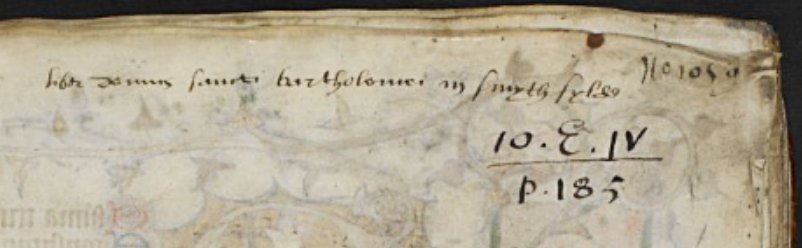 liber domus sancti bartholomei in smyth fylde No 1059
10. E. IV
p. 185